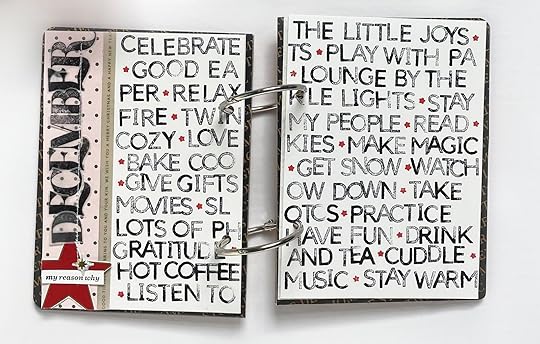 DECEMBER
my reason why
WE WISH YOU A MERRY CHRISTMAS AND A HAPPY NEW
CELEBRATE THE LITTLE JOYS •
• GOOD EATS • PLAY WITH PA
PER • RELAX • LOUNGE BY THE
FIRE • TWINKLE LIGHTS • STAY
COZY • LOVE MY PEOPLE • READ •
• BAKE COOKIES • MAKE MAGIC
• GIVE GIFTS • GET SNOW • WATCH
MOVIES • SLOW DOWN • TAKE
LOTS OF PHOTOS • PRACTICE
GRATITUDE HAVE FUN • DRINK
HOT COFFEE AND TEA • CUDDLE •
• LISTEN TO MUSIC • STAY WARM